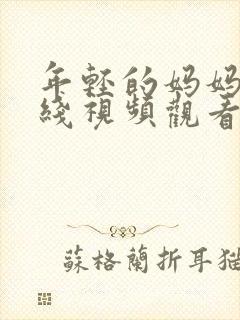 年輕的妈妈
綫視頻觀看
蘇格蘭折耳猫